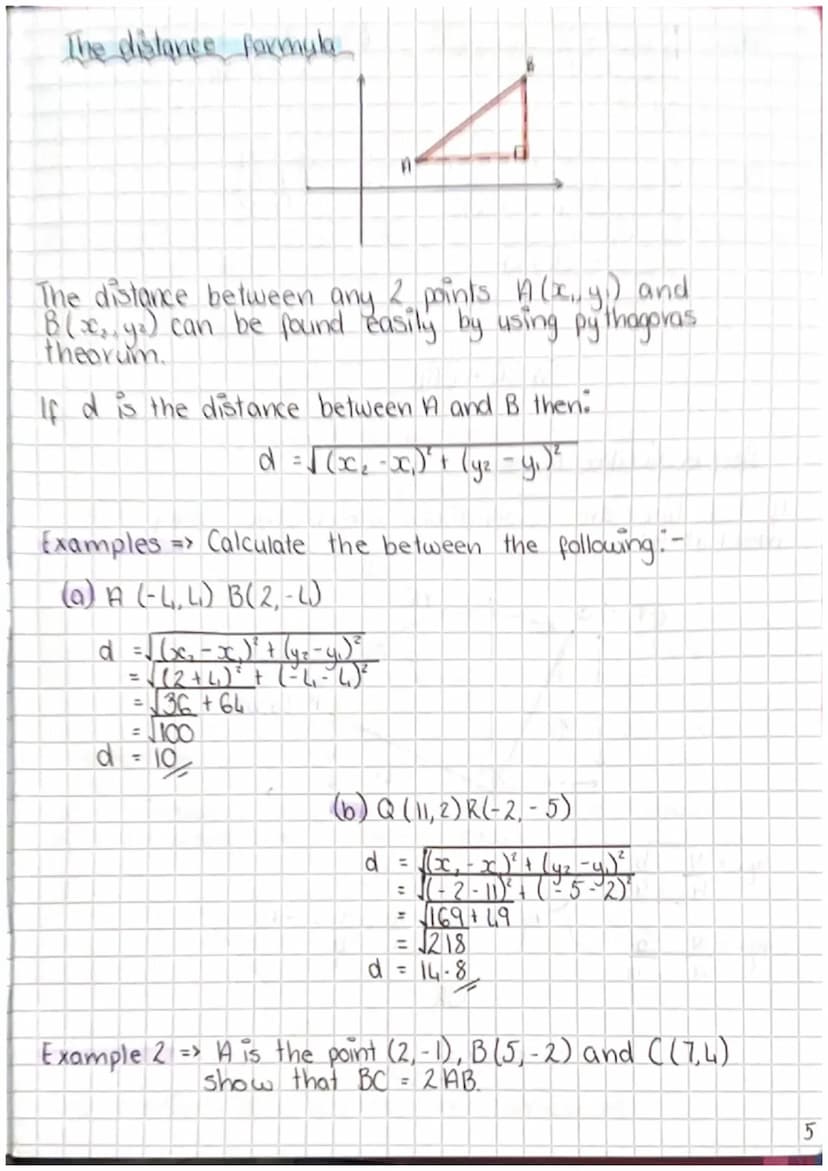 The distance formula
B
A
The distance between any 2 points A(x₁, y₁) and
B(x₂, y₂) can be found easily by using pythagoras
theorum.
If d is the distance between A and B then:
d = √(x₂ - x₁)² + (y₂ - y₁)²
Examples => Calculate the between the following:-
(a) A (-4, 4) B(2, -4)
d = √(x₂ - x₁)² + (y₂ - y₁)²
= √(2+4)² + (-4-4)²
= √36 + 64
= √100
d = 10
(b) Q (11, 2) R(-2, -5)
d = √(x₂ - x₁)² + (y₂ - y₁)²
= √(-2-11)² + (-5-2)²
= √169 + 49
= √218
d = 14.8
Example 2 => A is the point (2, -1), B(5, -2) and C(7, 4)
show that BC = 2AB.
5